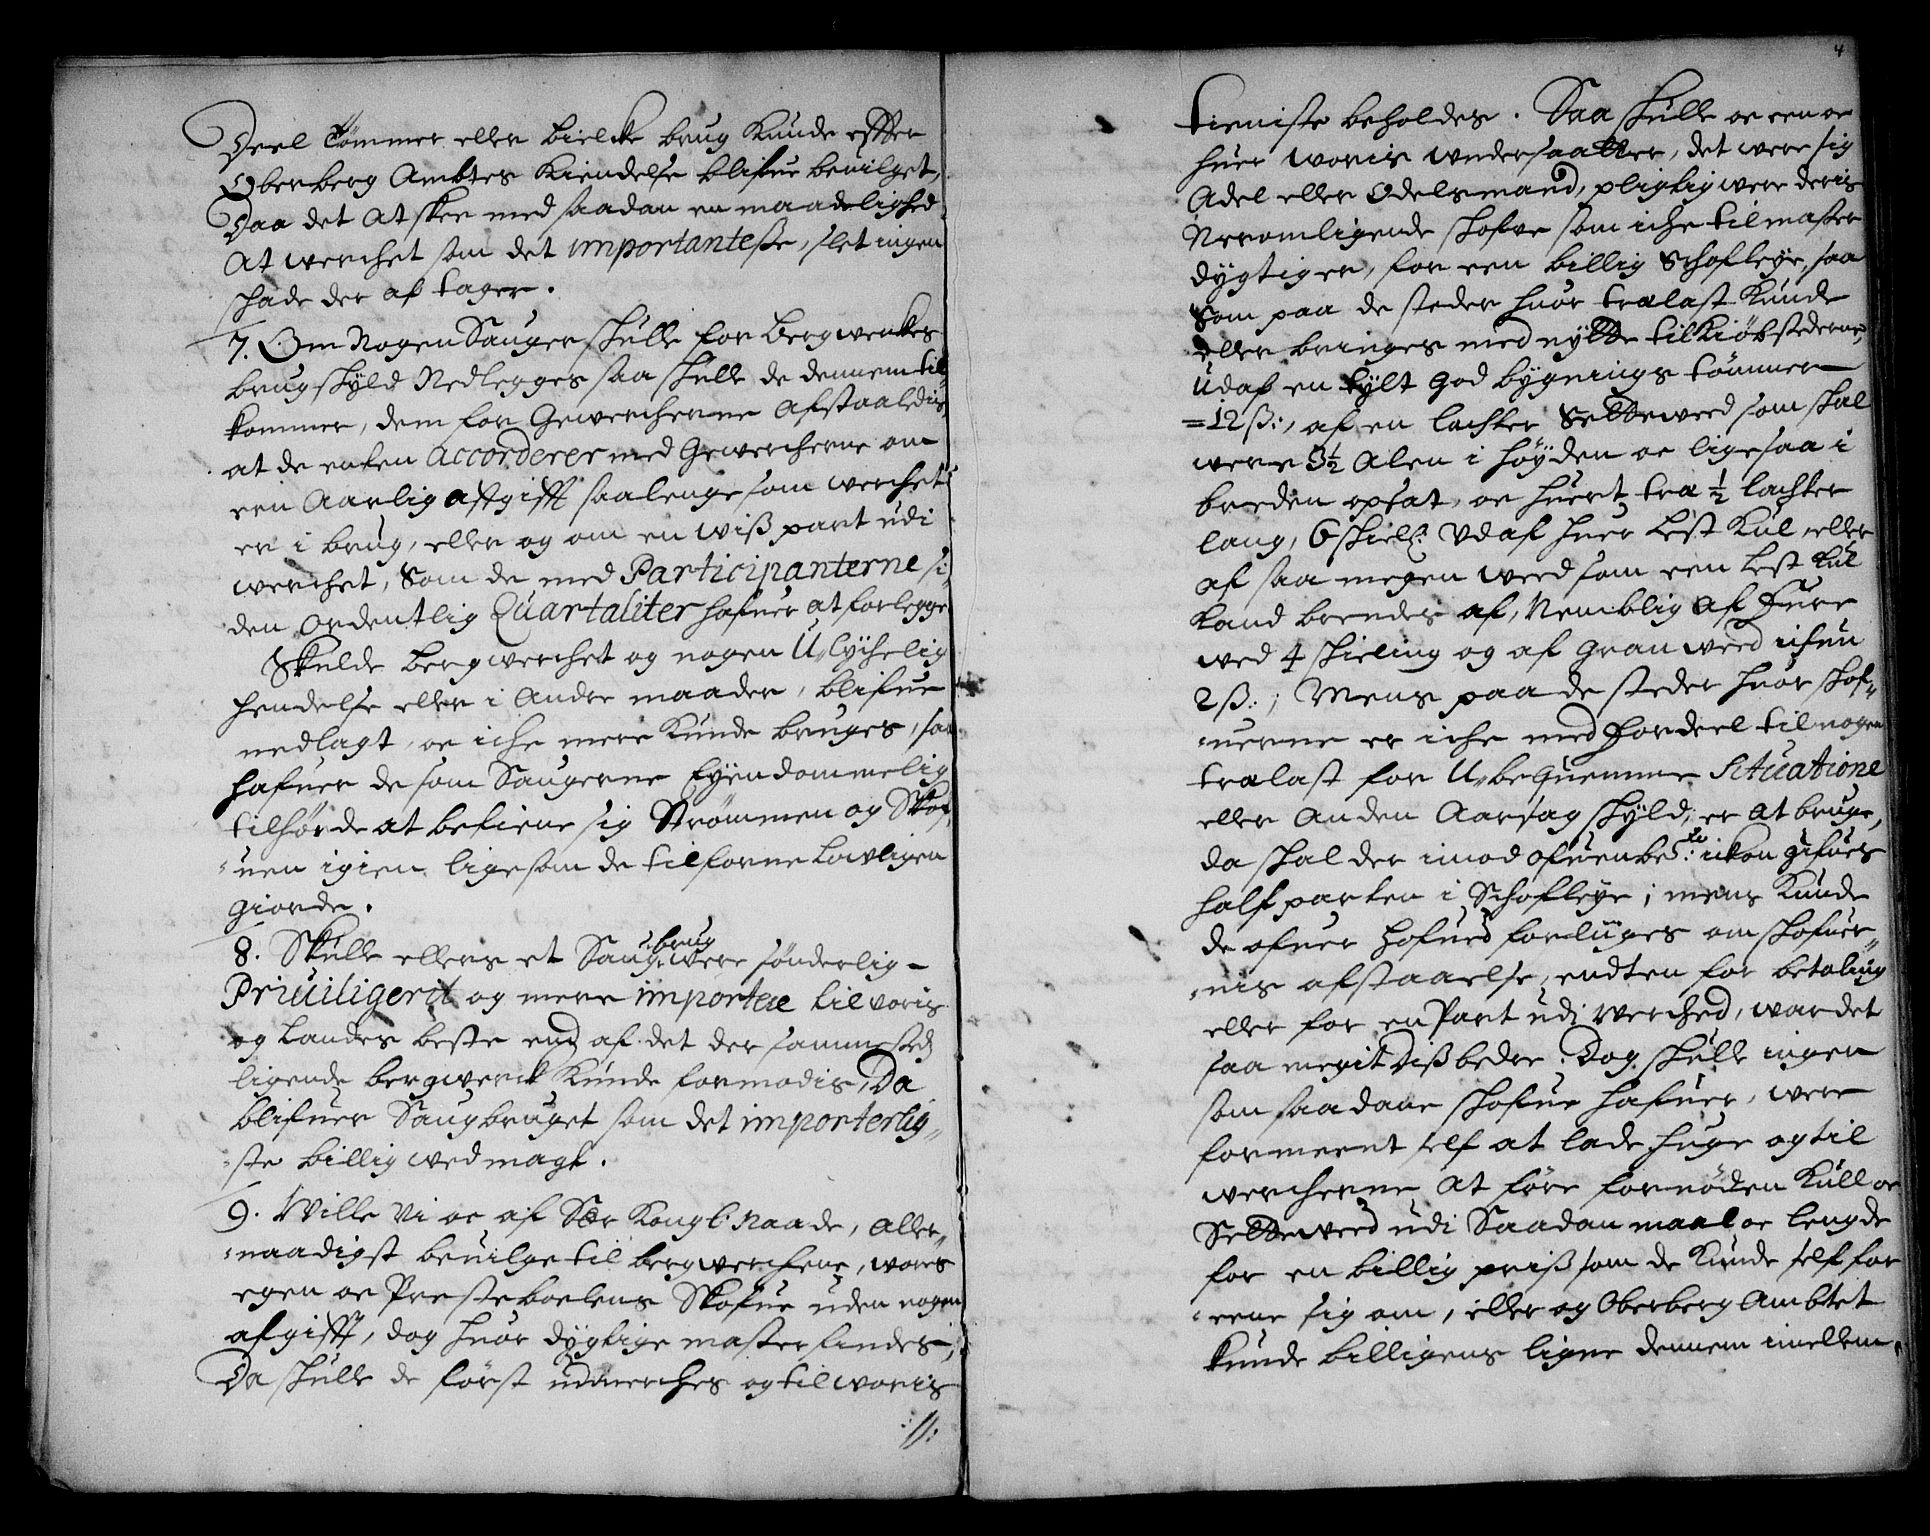 Deel tømmer eller bielcke brug kunde effter
Oberberg Ambtes kiendelse blifue beuilget,
Daa det at skee med saadan en maadelighed
At werchet som det importanteste, slet ingen
schade der af tager.
7. Om Nogen Sauger skulle for Bergwerckes
brug skyld Nedlegges saa skulle de dennem til„
kommer, dem for Gewercherne Afstaa ledis
at de enten Accorderer med Gewercherne om
een Aarlig affgifft saalenge som werchet
er i brug, eller og om en wiß part udi
werchet, som de med Participanterne si„
den ordentlig Quartaliter hafuer at forlegge
Skulde bergwerchet og nogen U„lychelig
hendelse eller i Andre maader, blifue
nedlagt, oc iche mere kunde bruges, saa
hafuer de som Saugerne Eyendommelig
tilhørde at betiene sig Strømmen og Skof„
„uen igien ligesom de tilforne lovligen
giorde.
8. Skulle ellers et Saugbrug were sønderlig
Priuiligerit og mere importere til voris
og Landes beste end af det der sammesteds
liggende bergwerck kunde formodis, Da
blifuer Saugbruget som det importerlig„
„ste billig wed magt.
9. Wille vi oc af Sær Kongl: Naade, Aller„
„naadigst beuilge til bergwerchene, wores
egen oc Prestebolens Skofue uden nogen
afgifft, dog huor dygtige master findes,
Da skulle de først udmerches og til woris
://:
4
tieniste beholdes. Saa skulle oc een oc
huer woris undersaatter, det were sig
Adel eller Odelsmand, pligtig were deris
Neromligende skofve som iche til master
dygtiger, for een billig Schofleye, saa
som paa de steder huor trælast kunde
eller bringes med nytte til kiøbstederne,
Udaf en tylt god bygnings tømmer
=12ß:, af en lachter Setteweed som skal
were 3½ Alen i høyden oc ligesaa i
breden opsat, oc huert træ ½ lachter
lang, 6 skiell: Udaf huer lest kul, eller
af saa megen weed som een lest kul
kand brendes af, Nemblig af fure
wed 4 skieling og af Granweed ichun
2ß:; Mens paa de steder huor skof„
„uerne er iche med fordeel til nogen
trælast for U„bequemme Situatione
eller Anden Aarsag skyld, er at bruge,
da skal der imod ofuenbe:te ickon gifues
half parten i Schofleye; mens kunde
de ofuer hofued forliiges om skofuer„
„nis afstaaelse, endten for betaling
eller for en Part udi werched, war det
saa megit diß bedre. Dog skulle ingen
som saadane skofue hafuer, were
formeent self at lade huge og til
wercherne At føre fornøden Kull oc
Setteweed udi Saadan maal oc lengde
for en billig priß som de kunde self for„
„eene sig om, eller og Oberberg Ambtet
kunde billigens ligne dennem imellem.